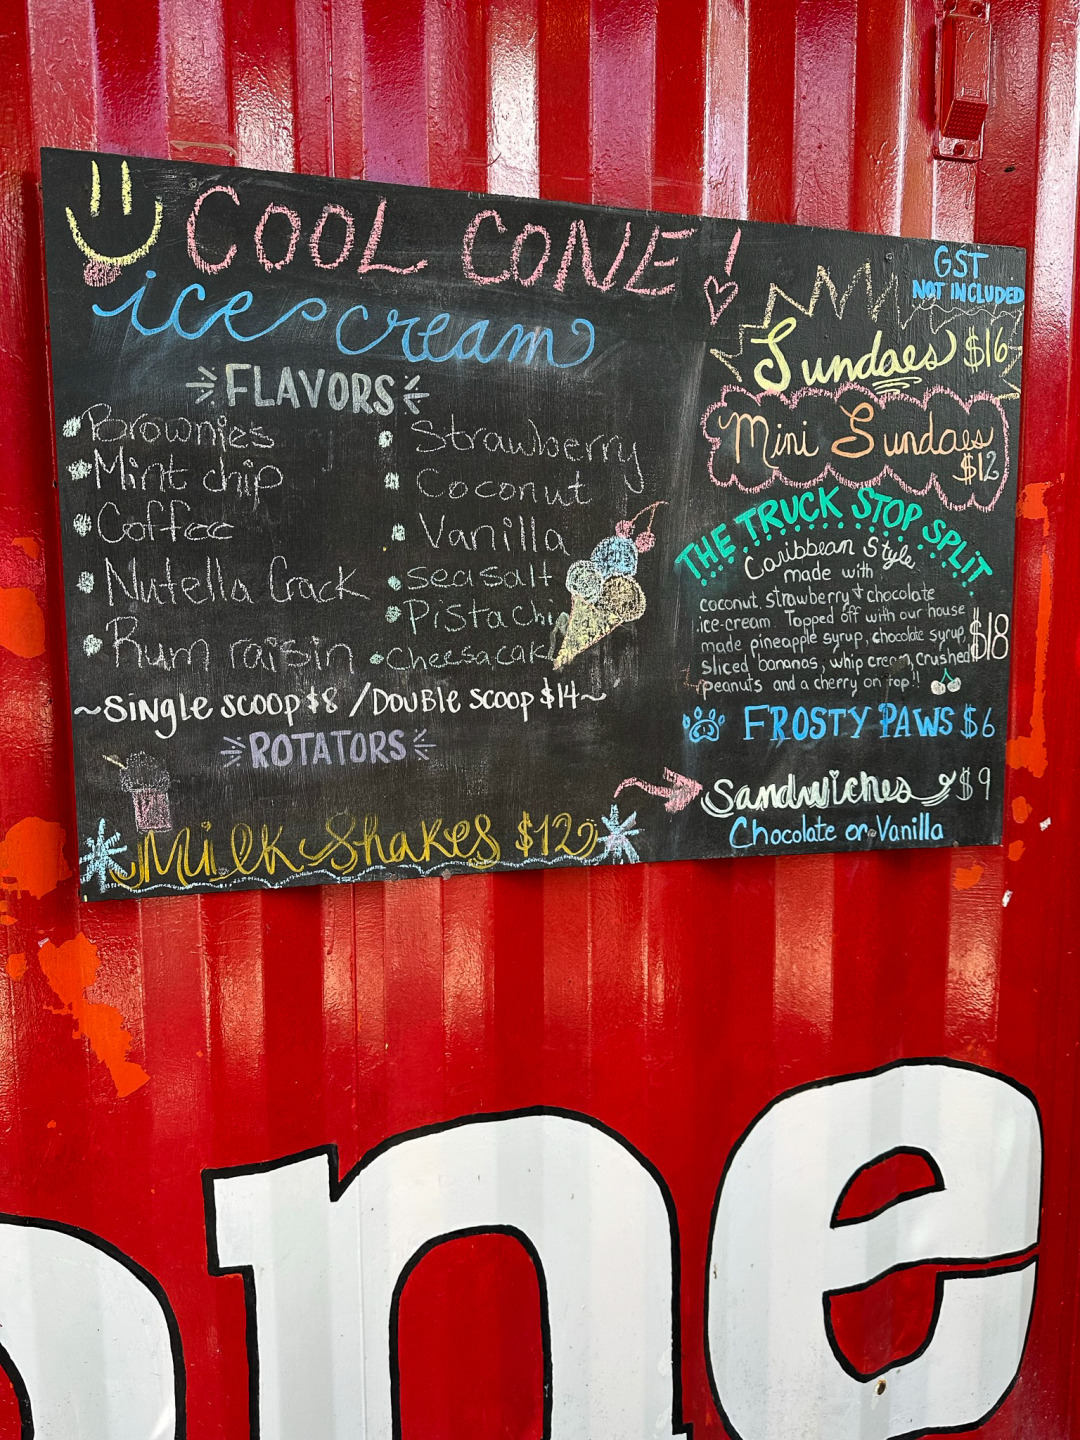 COOL CONE!
ice cream
FLAVORS
Brownies
Mint chip
Coffee
Nutella Crack
Rum raisin
Strawberry
Coconut
Vanilla
seasalt
Pistachi
Cheesacake
~Single scoop $8 / Double scoop $14~
ROTATORS
Milk Shakes $12
GST
NOT INCLUDED
Sundaes $16
Mini Sundaes
$12
THE TRUCK STOP SPLIT
Caribbean Style
made with
coconut, strawberry & chocolate
ice-cream Topped off with our house
made pineapple syrup, chocolate syrup,
sliced bananas, whip cream, crushed
peanuts and a cherry on top!!
$18
FROSTY PAWS $6
Sandwiches $9
Chocolate or Vanilla
one